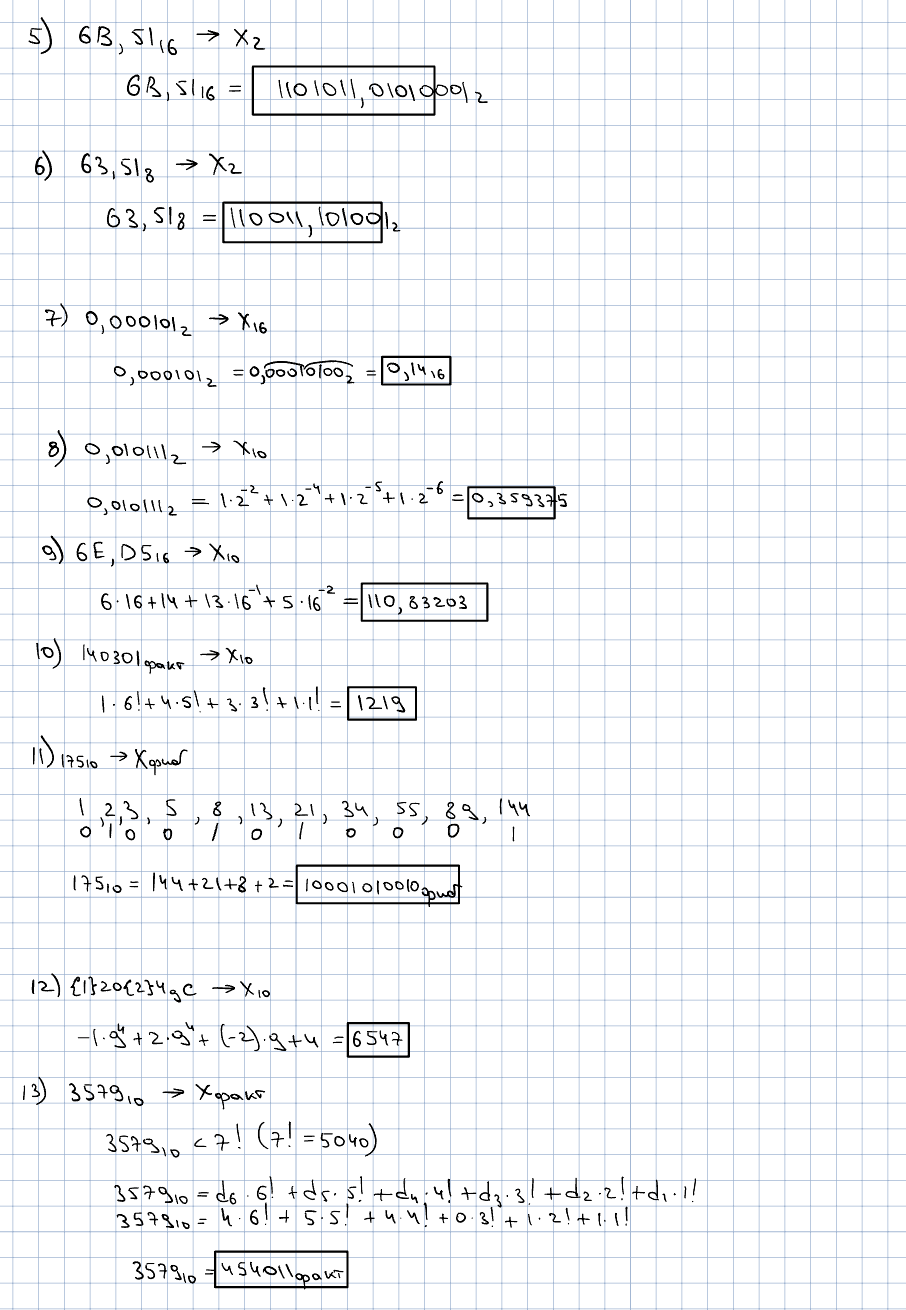 5) 6B,51₁₆ → X₂
6B,51₁₆ = 1101011,01010001₂
6) 63,51₈ → X₂
63,51₈ = 110011,101001₂
7) 0,000101₂ → X₁₆
0,000101₂ = 0,00010100₂ = 0,14₁₆
8) 0,010111₂ → X₁₀
0,010111₂ = 1·2⁻² + 1·2⁻⁴ + 1·2⁻⁵ + 1·2⁻⁶ = 0,359375
9) 6E,D5₁₆ → X₁₀
6·16+14+13·16⁻¹+5·16⁻² = 110,83203
10) 140301факт → X₁₀
1·6!+4·5!+3·3!+1·1! = 1219
11) 175₁₀ → Xфиб
1, 2, 3, 5, 8, 13, 21, 34, 55, 89, 144
0 1 0 0 1 0 1 0 0 0 1
175₁₀ = 144+21+8+2 = 10001010010фиб
12) {1}20{2}4₉C → X₁₀
-1·9⁴+2·9⁴+(-2)·9+4 = 6547
13) 3579₁₀ → Xфакт
3579₁₀ < 7! (7! = 5040)
3579₁₀ = d₆·6! + d₅·5! + d₄·4! + d₃·3! + d₂·2! + d₁·1!
3579₁₀ = 4·6! + 5·5! + 4·4! + 0·3! + 1·2! + 1·1!
3579₁₀ = 454011факт